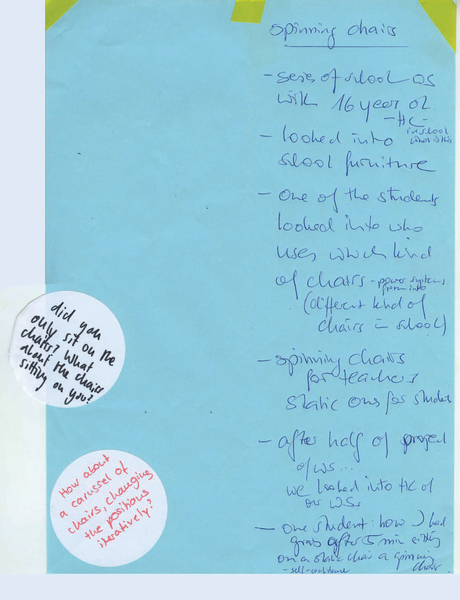 spinning chairs
- series of school WS
with 16 year ol
- HC -
in school
- looked into
school furniture
- one of the students
looked into who
uses which kind
of chairs - power systems
(different kind of
chairs in school)
- spinning chairs
for teachers
static ones for student
- after half of project
of WS...
we looked into HC of
our WSs
- one student: how I had
after 5 min sitting
on a static chair a spinning
chair
- self-confidence
did you
only sit on the
chairs? What
about the chairs
sitting on you?
How about
a carussel of
chairs, changing
the positions
iteratively?